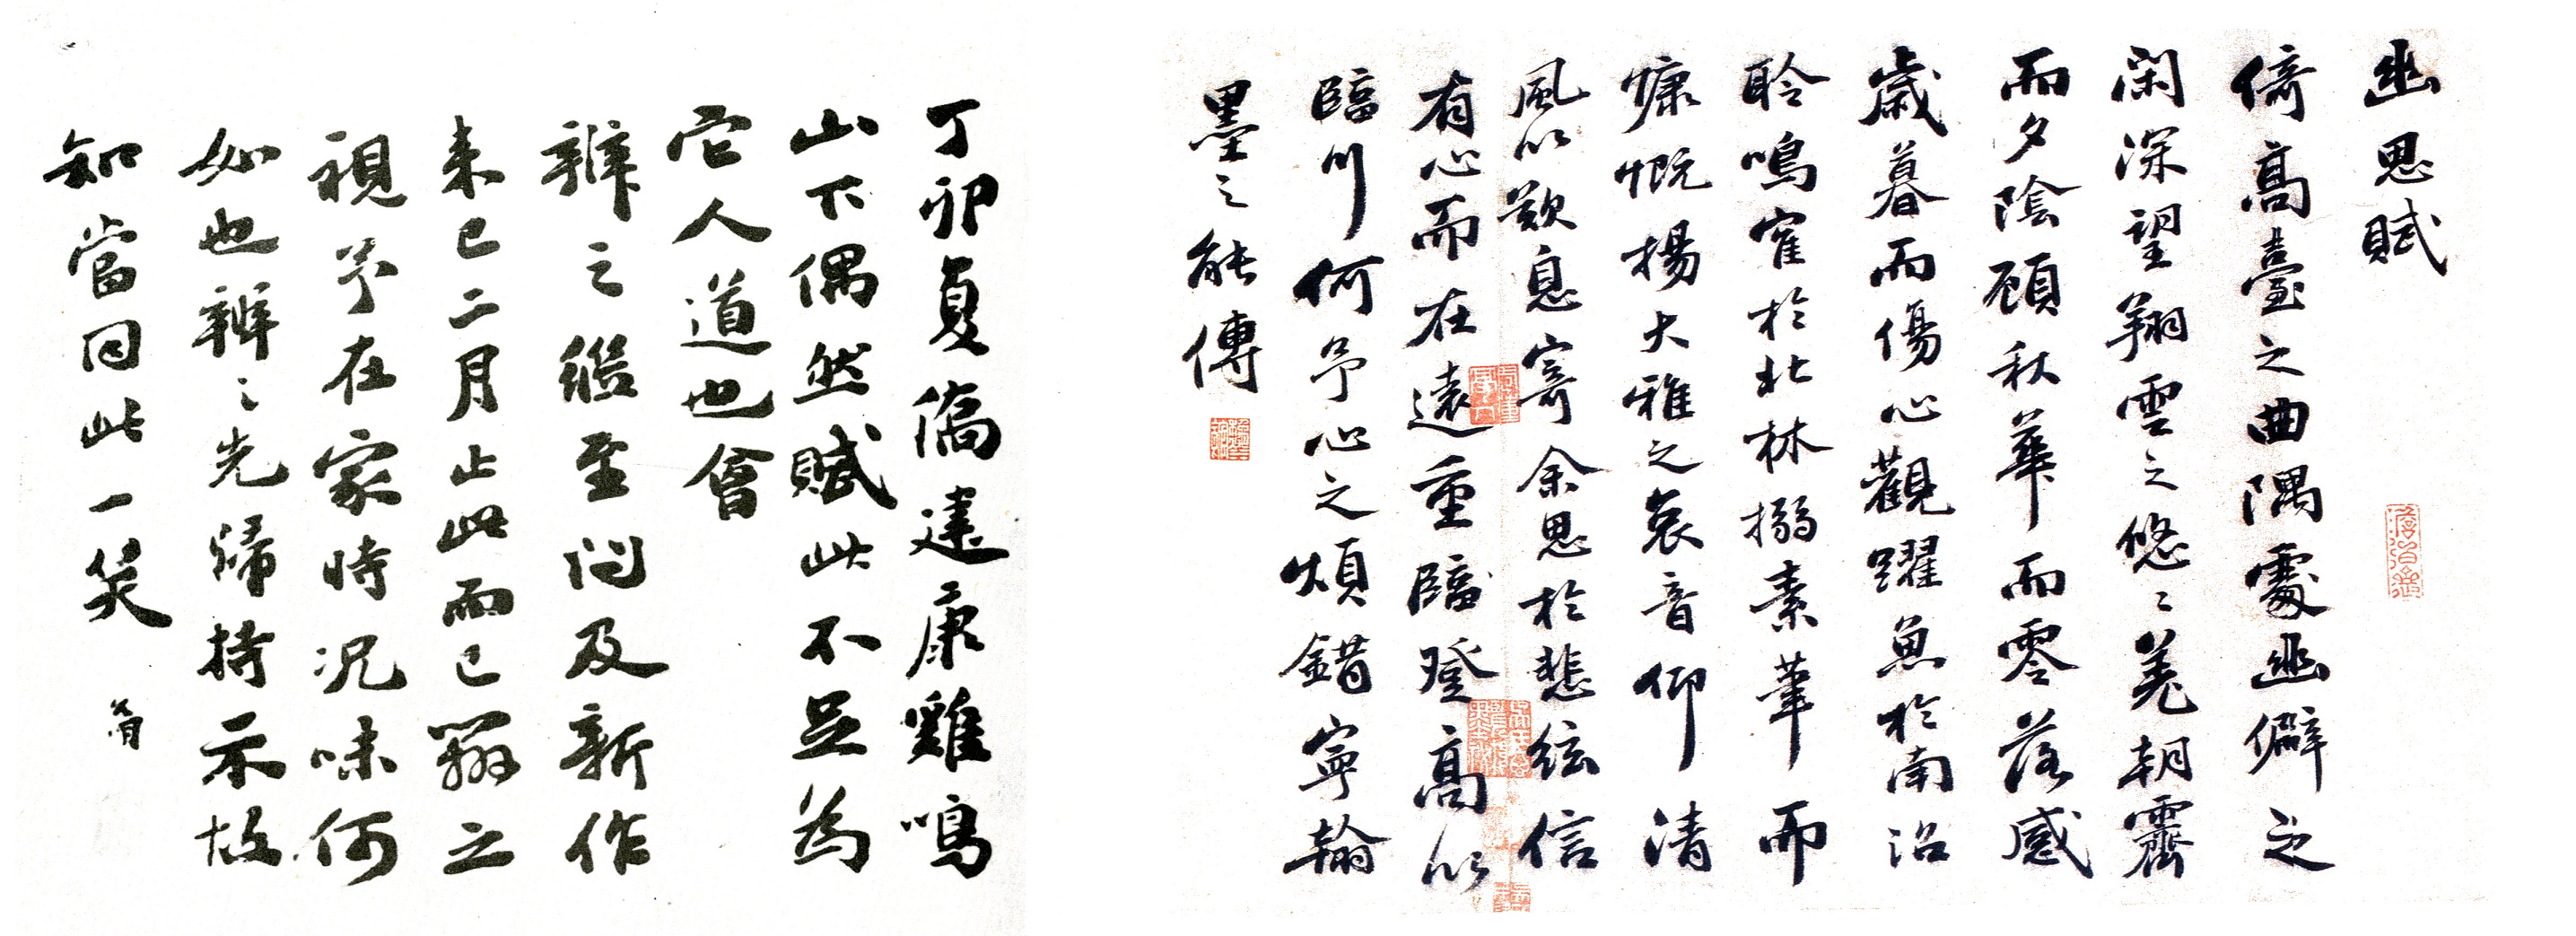 幽思賦
倚高臺之曲隅處幽僻之
閑深望翔雲之悠〻羌朝霽
而夕陰顧秋華而零落感
歲暮而傷心觀躍魚於南沼
聆鳴寉於北林搦素筆而
慷慨揚大雅之哀音仰清
風以歎息寄余思於悲絃信
有心而在遠重臨登高以
臨川何予心之煩錯寧翰
墨之能傳
丁卯夏偏建康雞鳴
山下偶然賦此不足為
它人道也會
辤之繼至問及新作
来已二月止此而已 之
視予在家時況味何
如也辤〻先歸持示故
知當同此一笑